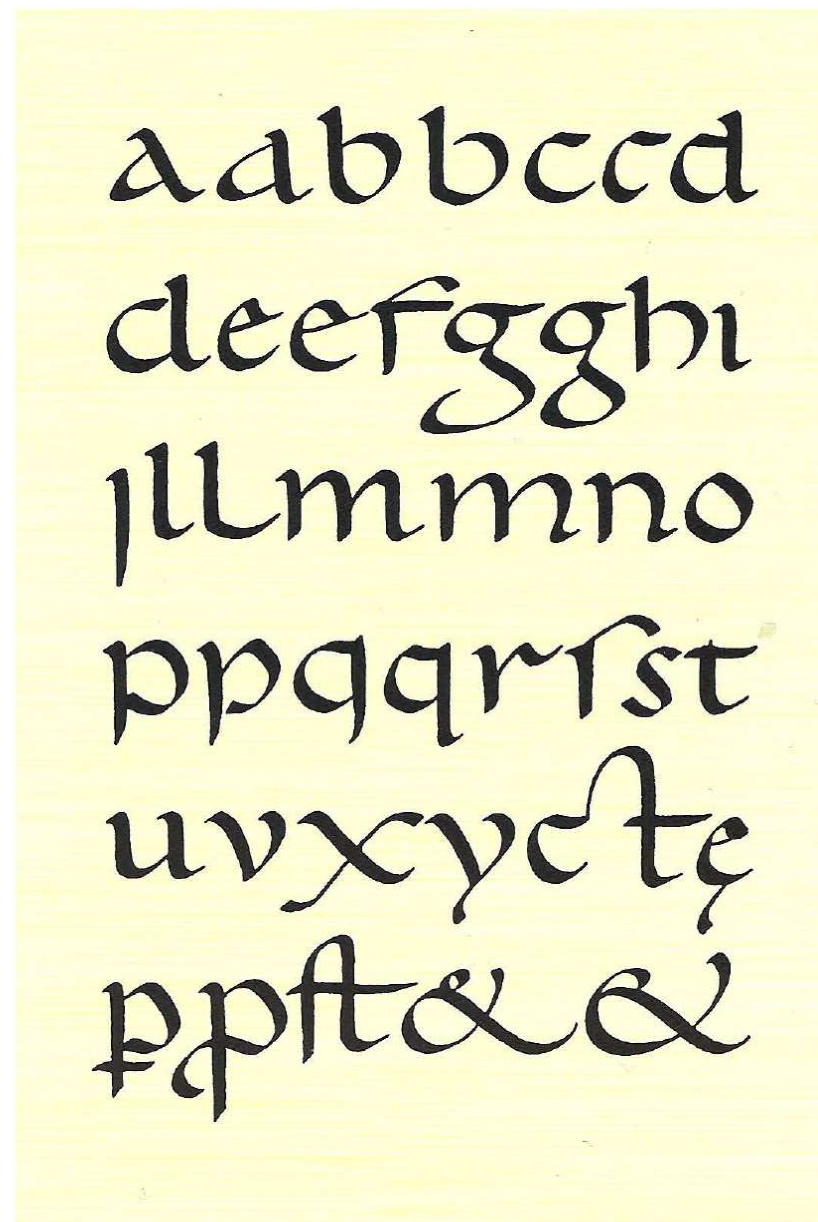 aabbccd
deefgghı
ȷllmmno
ppqqrſst
uvxyctę
ꝑꝓſt&&